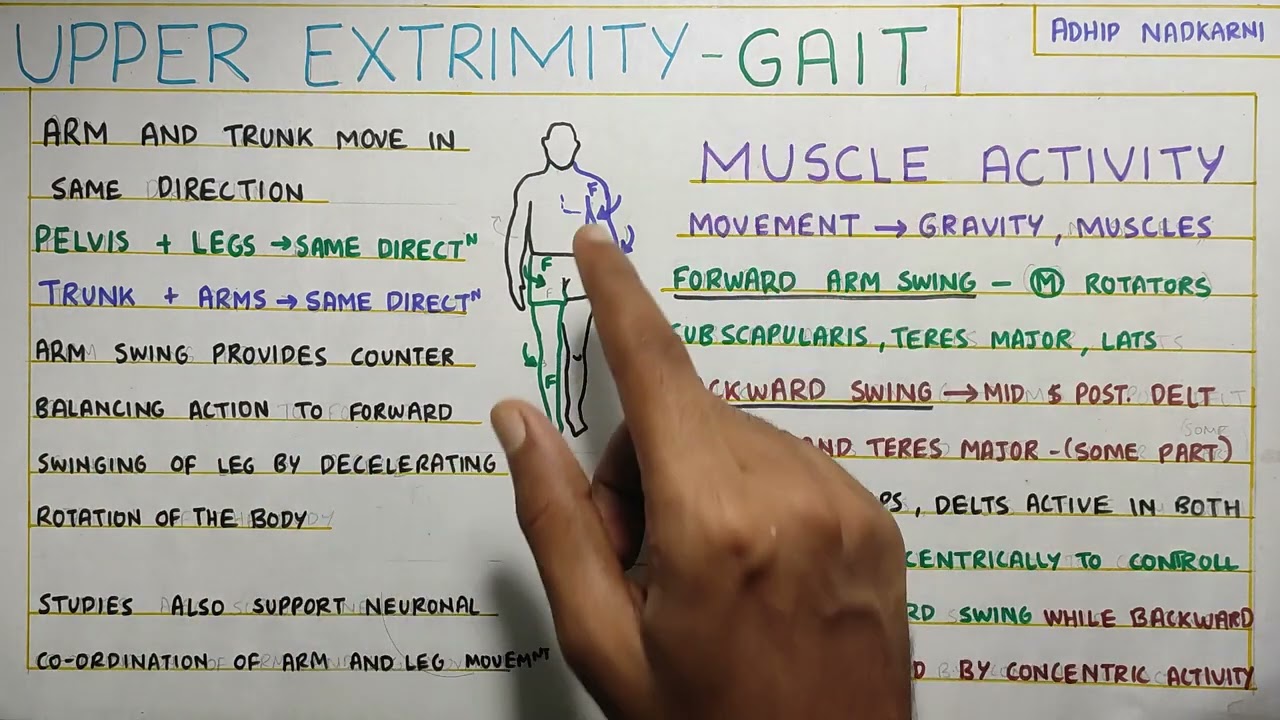 UPPER EXTRIMITY - GAIT
ADHIP NADKARNI
ARM AND TRUNK MOVE IN
SAME DIRECTION
PELVIS + LEGS → SAME DIRECTᴺ
TRUNK + ARMS → SAME DIRECTᴺ
ARM SWING PROVIDES COUNTER
BALANCING ACTION TO FORWARD
SWINGING OF LEG BY DECELERATING
ROTATION OF THE BODY
STUDIES ALSO SUPPORT NEURONAL
CO-ORDINATION OF ARM AND LEG MOVEMᴺᵀ
F
F
F
MUSCLE ACTIVITY
MOVEMENT → GRAVITY, MUSCLES
FORWARD ARM SWING - Ⓜ ROTATORS
SUBSCAPULARIS, TERES MAJOR, LATS
CKWARD SWING → MID $ POST. DELT
ND TERES MAJOR - (SOME PART)
PS, DELTS ACTIVE IN BOTH
CENTRICALLY TO CONTROLL
RD SWING WHILE BACKWARD
D BY CONCENTRIC ACTIVITY